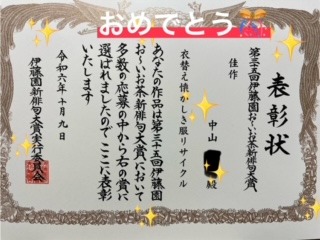 おめでとう
表彰状
第三十五回伊藤園お～いお茶新俳句大賞
佳作
中山
殿
衣替え懐かしき服リサイクル
あなたの作品は第三十五回伊藤園
お～いお茶新俳句大賞において
多数の応募の中から右の賞に
選ばれましたのでここに表彰
いたします
令和六年十月九日
伊藤園新俳句大賞実行委員会